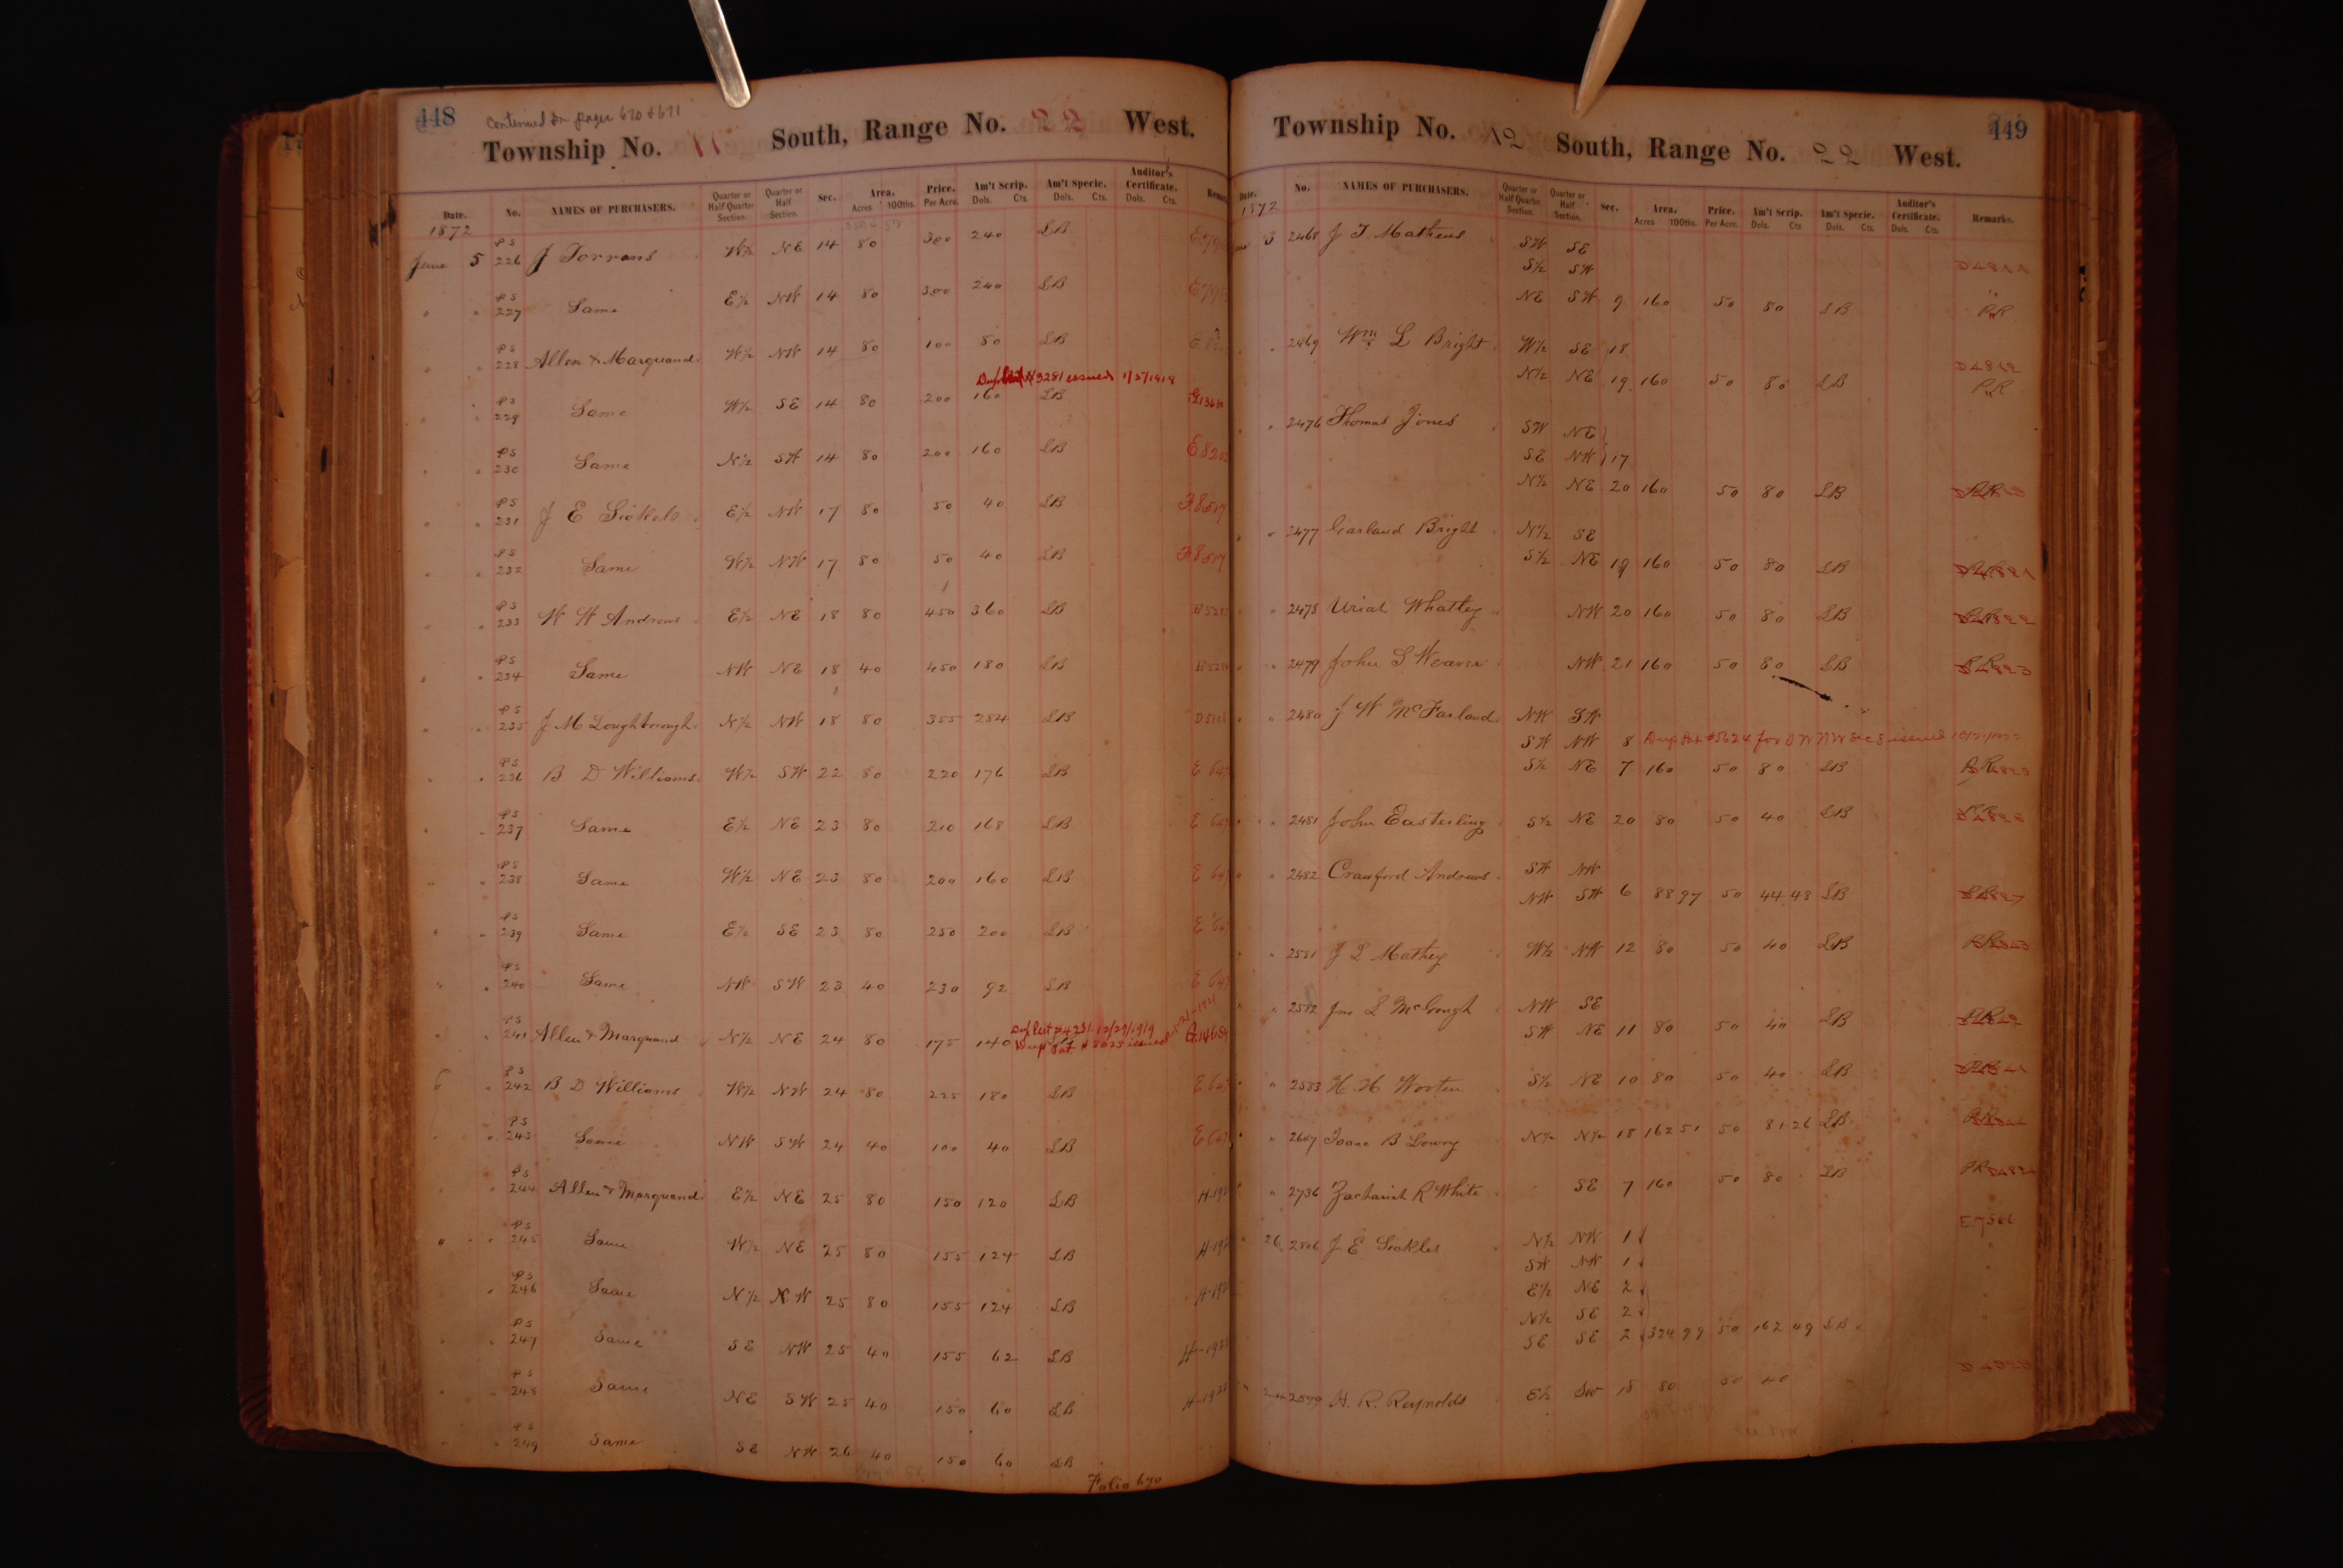 448
Continued on pages 670 & 671
Township No. 11 South, Range No. 22 West.
Date. No. NAMES OF PURCHASERS. Quarter or Half Quarter Section. Quarter or Half Section. Sec. Area. Acres 100ths. Price. Per Acre. Am't Scrip. Dols. Cts. Am't Specie. Dols. Cts. Auditor's Certificate. Dols. Cts.
1872
June 5 PS 226 J Torrans W½ NE 14 80 300 240 LB
" " PS 227 Same E½ NW 14 80 300 240 LB
" " PS 228 Allen & Marquand W½ NW 14 80 100 80 LB
#3281 issued 1/5/1918
" " PS 229 Same W½ SE 14 80 200 160 LB
" " PS 230 Same N½ SW 14 80 200 160 LB
" " PS 231 J E Sickels E½ NW 17 80 50 40 LB
" " PS 232 Same W½ NW 17 80 50 40 LB
" " PS 233 W H Andrews E½ NE 18 80 450 360 LB
" " PS 234 Same NW NE 18 40 450 180 LB
" " PS 235 J M Loughborough N½ NW 18 80 355 284 LB
" " PS 236 B D Williams W½ SW 22 80 220 176 LB
" " PS 237 Same E½ NE 23 80 210 168 LB
" " PS 238 Same W½ NE 23 80 200 160 LB
" " PS 239 Same E½ SE 23 80 250 200 LB
" " PS 240 Same NW SW 23 40 230 92 LB
" " PS 241 Allen & Marquand N½ NE 24 80 175 140
6 " PS 242 B D Williams W½ NW 24 80 225 180 LB
" " PS 243 Same NW SW 24 40 100 40 LB
" " PS 244 Allen & Marquand E½ NE 25 80 150 120 LB
" " PS 245 Same W½ NE 25 80 155 124 LB
" PS 246 Same N½ NW 25 80 155 124 LB
" " PS 247 Same SE NW 25 40 155 62 LB
" " PS 248 Same NE SW 25 40 150 60 LB
" " PS 249 Same SE NW 26 40 150 60 LB
Folio 670
449
Township No. 12 South, Range No. 22 West.
Date. No. NAMES OF PURCHASERS. Quarter or Half Quarter Section. Quarter or Half Section. Sec. Area. Acres 100ths. Price. Per Acre. Am't Scrip. Dols. Cts Am't Specie. Dols. Cts. Auditor's Certificate. Dols. Cts. Remarks.
1872
3 2468 J T Mathews SW SE
S½ SW
NE SW 9 160 50 80 LB PR
" 2469 Wm L Bright W½ SE 18
N½ NE 19 160 50 80 LB PR
" 2476 Thomas Jones SW NE
SE NW 17
N½ NE 20 160 50 80 LB
" 2477 Garland Bright N½ SE
S½ NE 19 160 50 80 LB
" 2478 Uriah Whatley NW 20 160 50 80 LB
" 2479 John S Weaver NW 21 160 50 80 LB
" 2480 J W McFarland NW SW
SW NW 8 Dup Pat #5624 for SW NW Sec 8 issued
S½ NE 7 160 50 80 LB
" 2481 John Easterling S½ NE 20 80 50 40 LB
" 2482 Crawford Andrews SW NW
NW SW 6 88 97 50 44 48 LB
" 2581 J L Mathey W½ NW 12 80 50 40 LB
" 2582 Jno L McGough NW SE
SW NE 11 80 50 40 LB
" 2583 H. H Wooten S½ NE 10 80 50 40 LB
" 2647 Isaac B Lowry N½ N½ 18 162 51 50 81 26 LB
" 2736 Zachariah R White SE 7 160 50 80 LB
26 2806 J E Sickles N½ NW 1
SW NW 1
E½ NE 2
N½ SE 2
SE SE 2 324 99 50 162 49 LB
H. R. Reynolds E½ SW 18 80 50 40